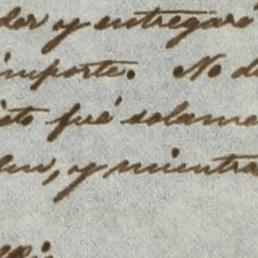 der y entregaré
importe. No d
sto fué solame
len, y mientra